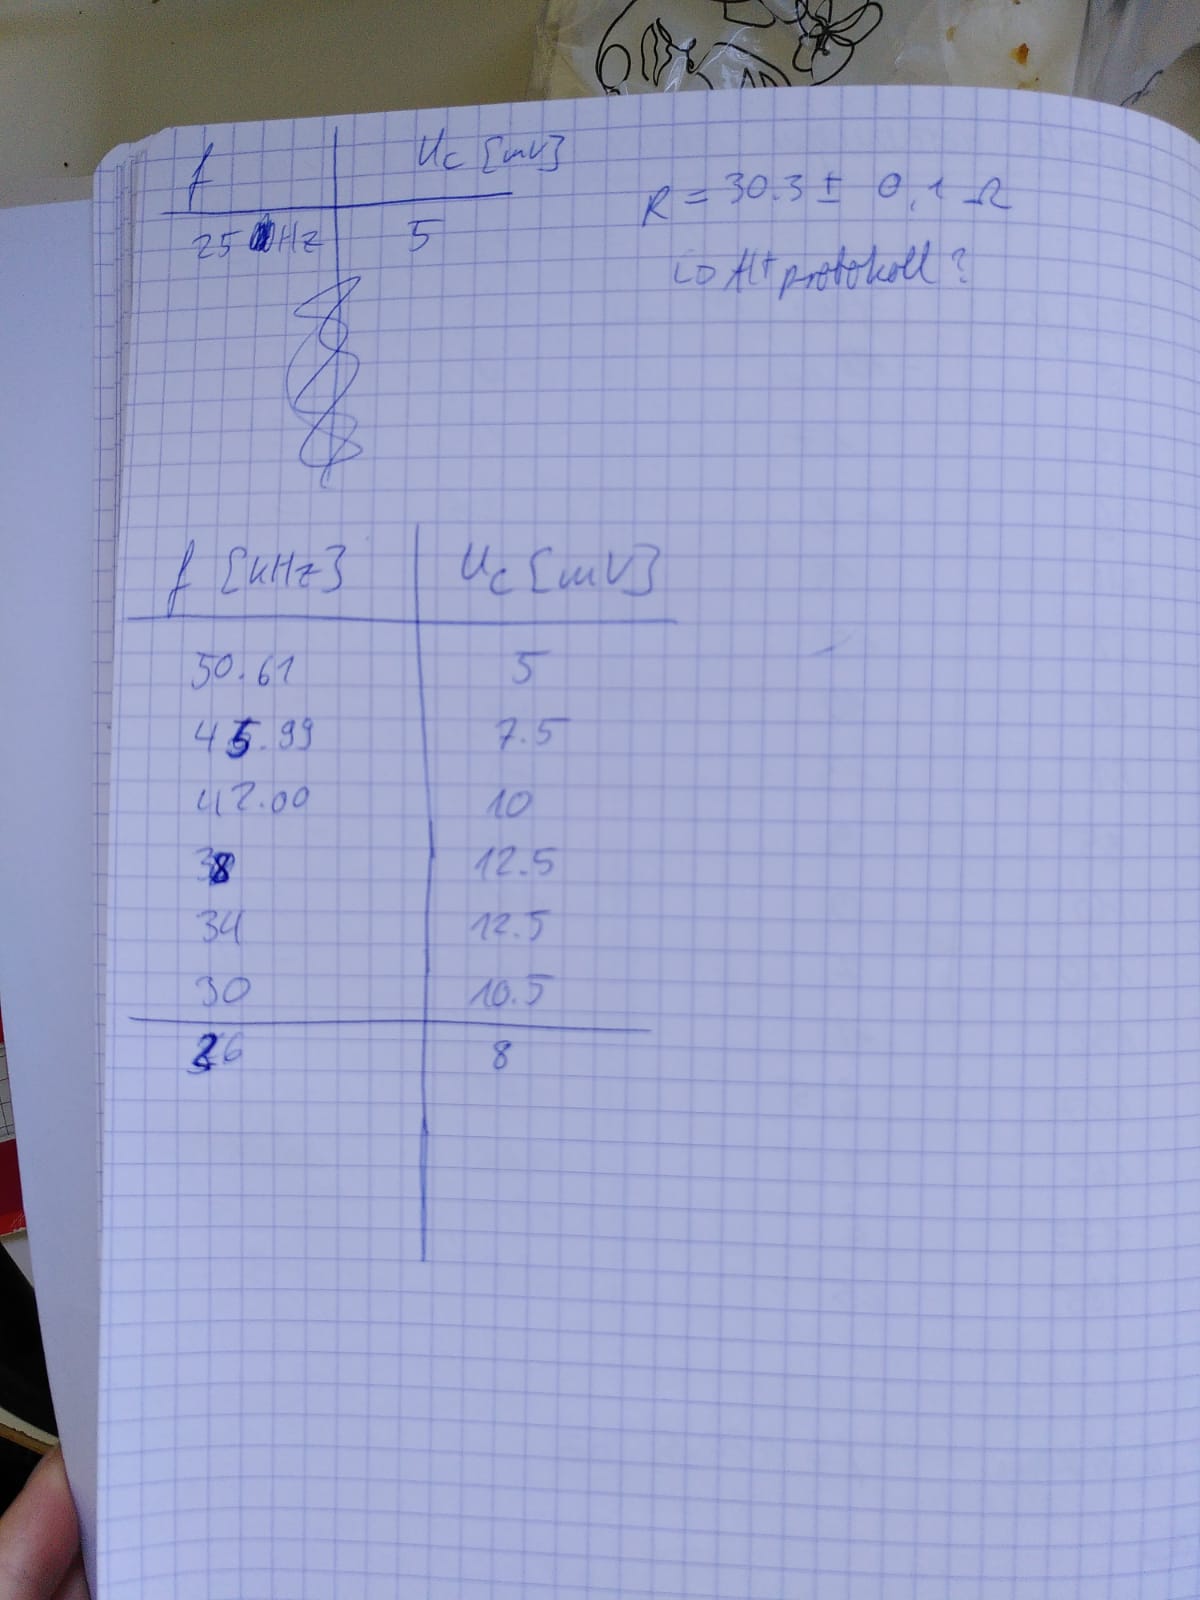 f U_C [mV]
25 Hz 5
R = 30.3 ± 0,1 Ω
↳ Altprotokoll?
f [kHz] U_C [mV]
50.61 5
45.99 7.5
42.00 10
38 12.5
34 12.5
30 10.5
26 8